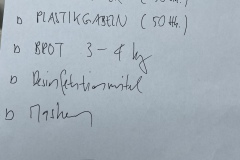 PLASTIKGABELN (50 Stk.)
BROT 3-4 kg
Desinfektionsmittel
Masken